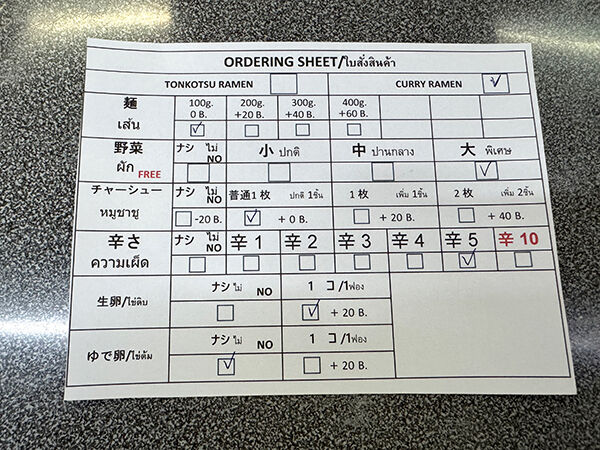 ORDERING SHEET/ใบสั่งสินค้า
TONKOTSU RAMEN CURRY RAMEN
麺 100g. 200g. 300g. 400g.
0 B. +20 B. +40 B. +60 B.
เส้น
野菜 ナシ ไม่ NO 小 ปกติ 中 ปานกลาง 大 พิเศษ
ผัก FREE
チャーシュー ナシ ไม่ NO 普通1 枚 ปกติ 1ชิ้น 1 枚 เพิ่ม 1ชิ้น 2 枚 เพิ่ม 2ชิ้น
หมูชาชู -20 B. + 0 B. + 20 B. + 40 B.
辛さ ナシ ไม่ NO 辛 1 辛 2 辛 3 辛 4 辛 5 辛 10
ความเผ็ด
生卵/ไข่ดิบ ナシ ไม่ NO 1 コ /1ฟอง
+ 20 B.
ゆで卵/ไข่ต้ม ナシ ไม่ NO 1 コ /1ฟอง
+ 20 B.